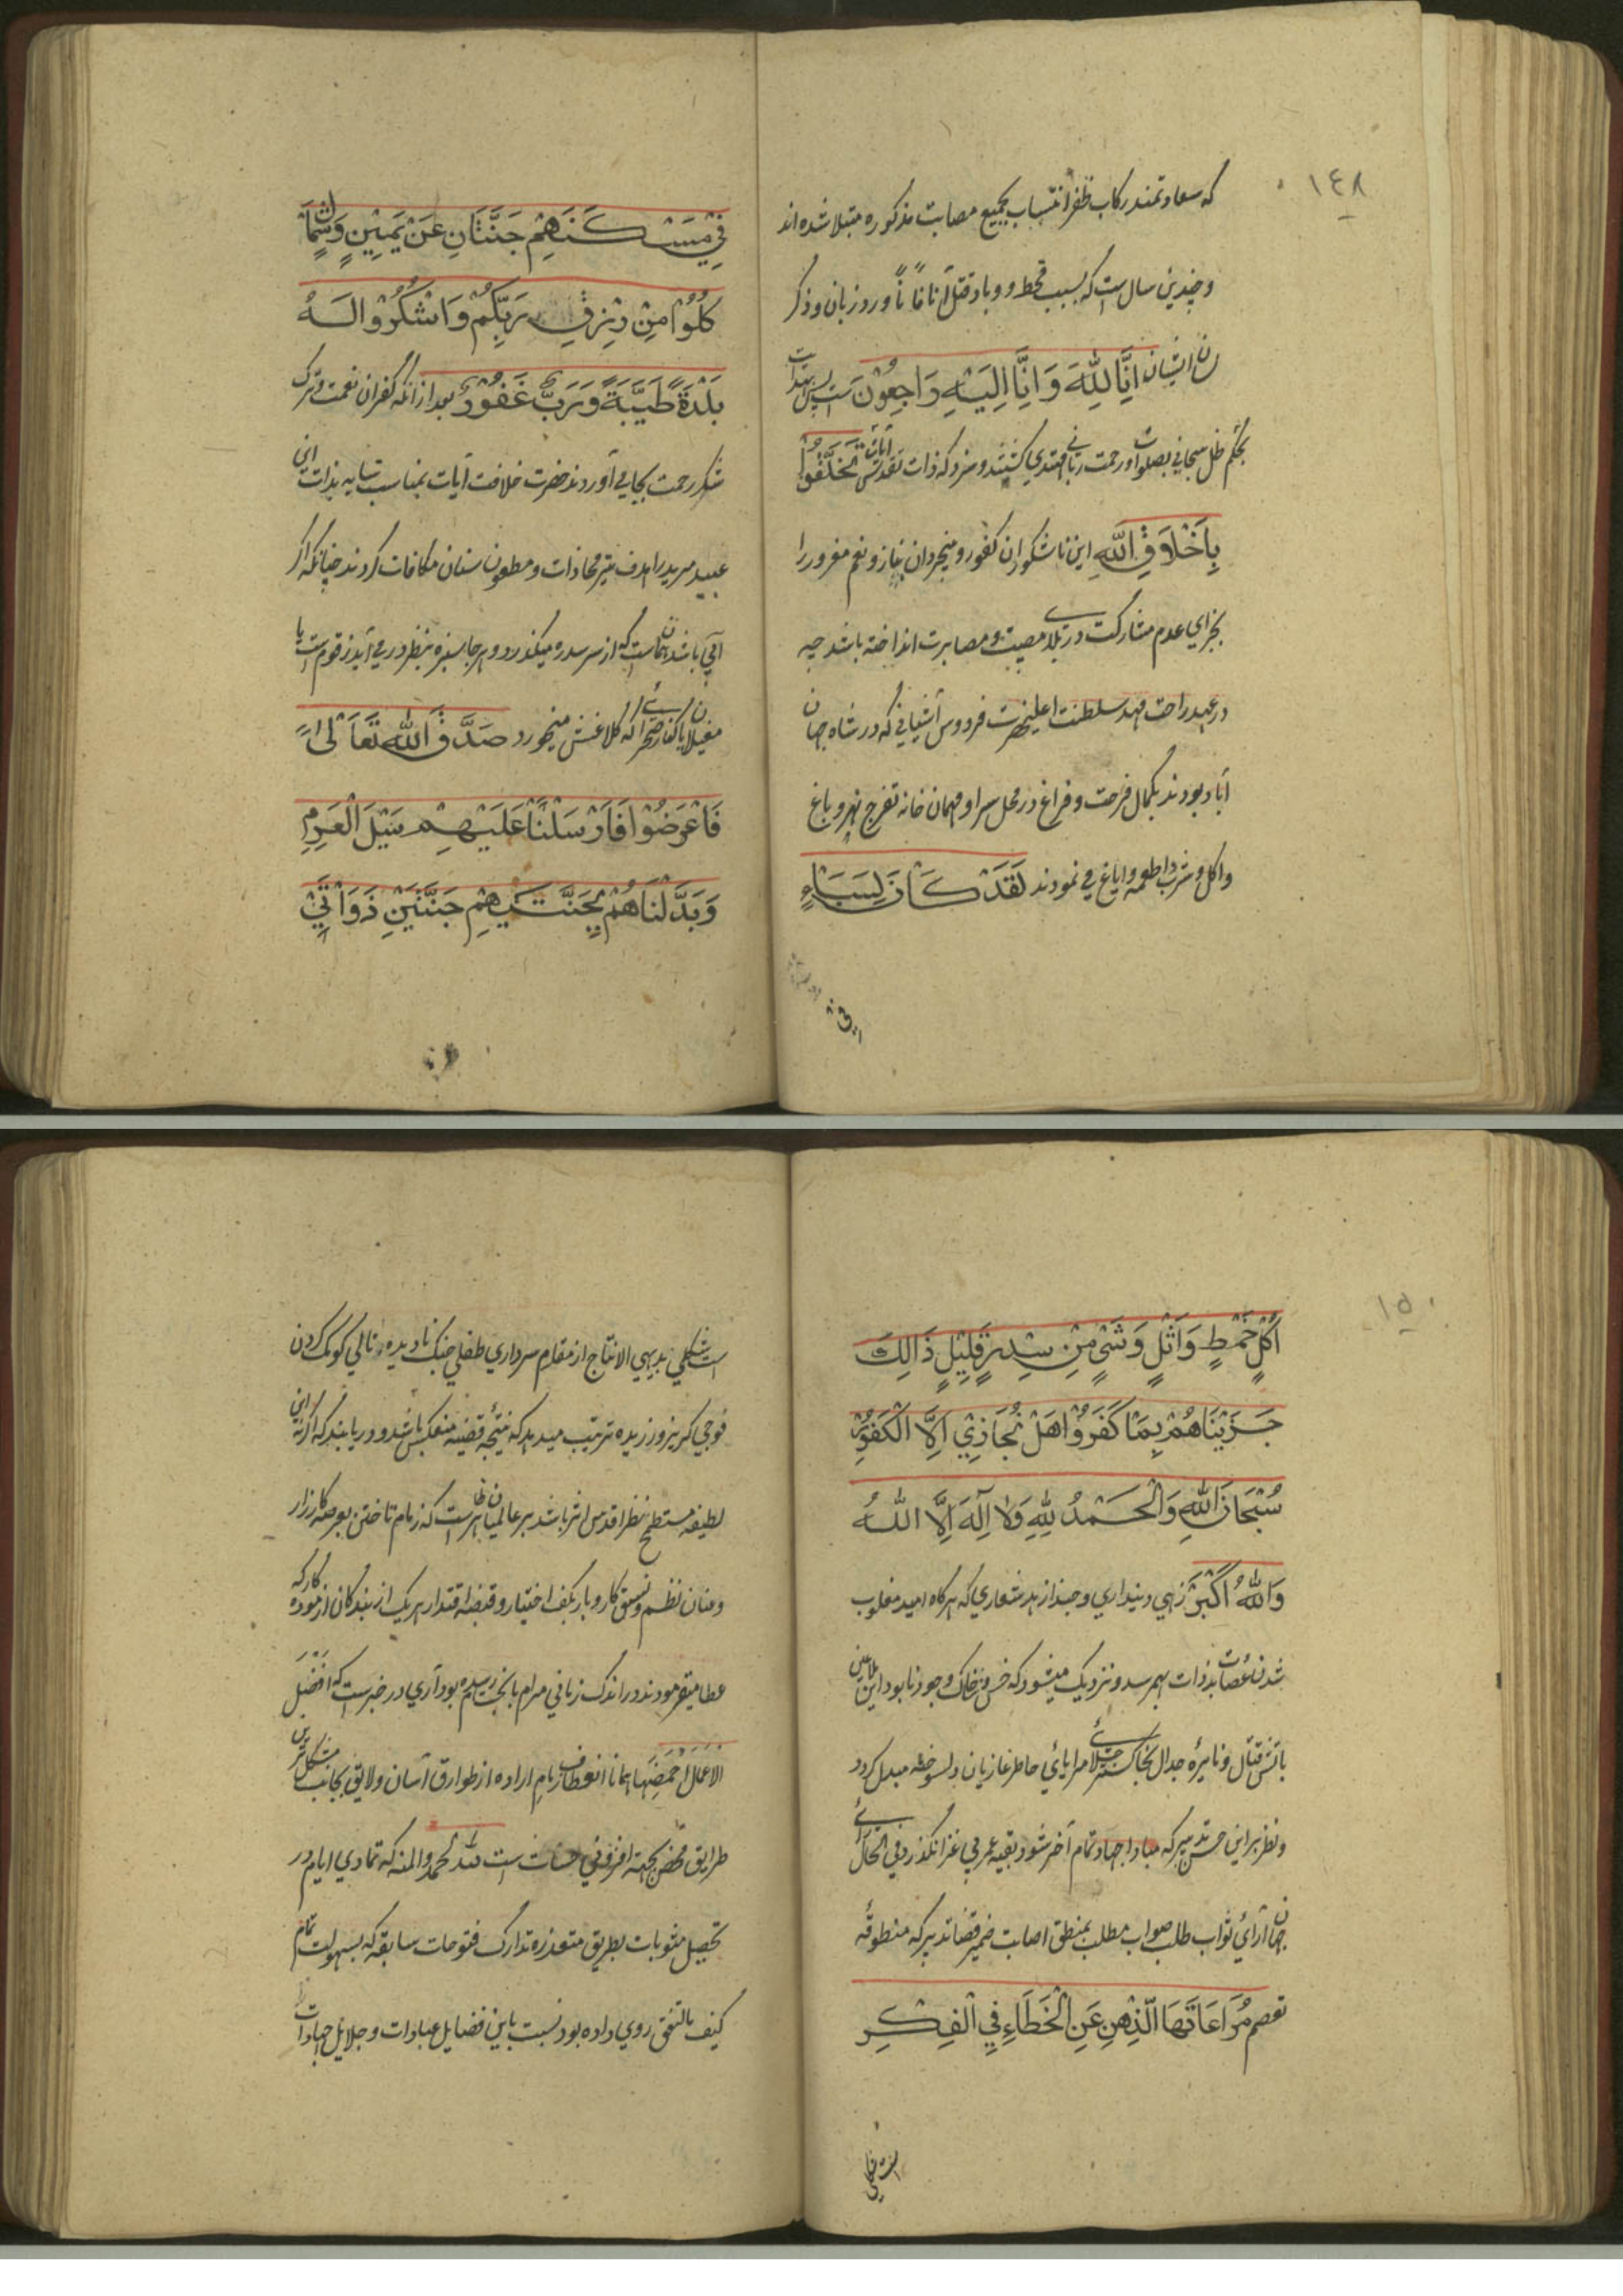 ١٤٨
که سعادتمند رکاب ظفر انتساب بجمیع مصایب مذکوره مبتلا شده اند
و چندین سال ست که بسبب قحط و وبا و قتل آناً فاناً ورد زبان و ذکر
لسان ایشان اِنَّا لِلّٰهِ وَاِنَّا اِلَیْهِ رَاجِعُوْنَ ست پس
بحکم ظل سبحانی بصلوات و رحمت ربانی مهتدی کشتند و سزد که ذات تقدس آیات تَخَلَّقُوْا
بِاَخْلَاقِ اللّٰهِ این ناشکوران کفور و بناز و نعم مغرور را
بجزای عدم مشارکت در بلا مصیبت و مصابرت انداخته باشد چه
در عهد راحت مهد سلطنت اعلیحضرت فردوس آشیانی که در شاه جهان
آباد بودند بکمال فرحت و فراغ در محل سرا و مهمان خانه تفرج نهر و باغ
و اکل و شرب و اطعمه و ایاغ می نمودند لَقَدْ کَانَ لِسَبَاءٍ
فِیْ مَسْکَنِهِمْ جَنَّتَانِ عَنْ یَمِیْنٍ وَّشِمَالٍ
کُلُوْا مِنْ رِّزْقِ رَبِّکُمْ وَاشْکُرُوْا لَهٗ
بَلْدَةٌ طَیِّبَةٌ وَّرَبٌّ غَفُوْرٌ بعد ازانکه کفران نعمت و ترک
شکر رحمت بجای آوردند حضرت خلافت آیات بمناسب بذات
عبید مرید را هدف تیر محاذات و مطعون سنان مکافات کردند چنانکه اکر
آبی باشد همان ست که از سر سدره میکذرد و هر جا سبزه بنظر در می آید زقوم ست یا
مغیلان یا کنار صحرائی که کلاغش نمیخورد صَدَقَ اللّٰهُ تَعَالٰی
فَاَعْرَضُوْا فَاَرْسَلْنَا عَلَیْهِمْ سَیْلَ الْعَرِمِ
وَبَدَّلْنَاهُمْ بِجَنَّتَیْهِمْ جَنَّتَیْنِ ذَوَاتَیْ
١٥٠
اُکُلٍ خَمْطٍ وَّاَثْلٍ وَّشَیْءٍ مِّنْ سِدْرٍ قَلِیْلٍ ذَالِکَ
جَزَیْنَاهُمْ بِمَا کَفَرُوْا هَلْ نُجَازِیْ اِلَّا الْکَفُوْرَ
سُبْحَانَ اللّٰهِ وَالْحَمْدُ لِلّٰهِ وَلَا اِلٰهَ اِلَّا اللّٰهُ
وَاللّٰهُ اَکْبَرُ زهی دینداری و حبذا زهد شعاری که هر کاه امید مغلوب
شدن عصات بذات بهمرسد و نزدیک میشود که خس و خاک وجود نابود این ملاعین
باتش قتال و نایره جدال بخاکستر مبدل کردد
و نظر بر این حسن تدبیر که مبادا جهاد تمام آخر شود و بقیه عمر بی غزا نکذرد فی الحال رای
جهان آرای ثواب طلب صواب مطلب بمنطق اصابت ضمیر قضا تدبیر که منطوقه
تعصم مُرَاعَاتُهَا الذِّهْنَ عَنِ الْخَطَاءِ فِی الْفِکْرِ
است شکلی بدیهی الانتاج از مقدم سرداری طفلی جنک نادیده و تالی کومک کردن
فوجی کریز ورزیده ترتیب میدهد که نتیجه قضیه منعکس باشد و دریابند که اکر
لطیفه مستطح نظر اقدس اثر باشد بر عالمیان ظاهر ست که زمام تاختن بعرصه کارزار
و عنان نظم و نسق کار و بار بکف اختیار و قبضه اقتدار هر یک از بندکان آزموده کار که
عطا میفرمودند در اندک زمانی مرام بانجام رسیده بود آری در خبر ست که اَفْضَلُ
الاَعْمَالِ اَحْمَضُهَا همانا انعطاف زمام اراده از طوارق آسان و لایق بجانب مشکل ترین
طرایق محض بجهة افزونی حسنات ست لله الحمد والمنه که تمادی ایام در
تحصیل مثوبات بطریق متعذره تدارک فتوحات سابقه که بسهولت تمام
کیف ما اتفق روی داده بود نسبت باین فضایل عبادات و جلایل جهادات